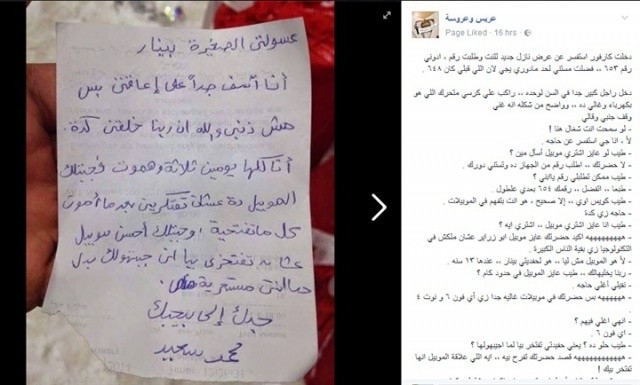 عسولتي الصغيرة بينار
أنا آسف جداً على إعاقتي بس
مش ذنبي والله ان ربنا خلقني كدة.
أنا كلها يومين ثلاثة وهموت فجبتلك
الموبيل دة عشان تفتكريني بعد ما أموت
كل ما تفتحية، وجبتلك أحسن موبيل
عشان تفتخري بيا اني جبتهولك بدل
ما انتي مستعرية
جدك إللى بيحبك
محمد سعيد
عريس وعروسة
Page Liked · 16 hrs
دخلت كارفور استفسر عن عرض نازل جديد للنت وطلبت رقم ، ادوني
رقم ٦٥٣ .. ففضلت مستني لحد مادوري يجي لان اللي قبلي كان ٦٤٨ .
دخل راجل كبير جدا في السن لوحده .. راكب علي كرسي متحرك اللي هو
بكهرباء وغالي ده .. وواضح من شكله انه غني
وقف جنبي وقالي
- لو سمحت انت شغال هنا !
لأ ، انا جي استفسر عن حاجه .
- طيب لو عايز اشتري موبيل أسأل مين ؟
- لا حضرتك.. اطلب رقم من الجهاز ده وتستني دورك .
- طيب ممكن تطلبلي رقم ياابني ؟
- طبعا .. اتفضل .. رقمك ٦٥٤ بعدي علطول .
- طيب كويس اوي .. إلا صحيح ، هو انت بتفهم في الموبيلات .
- حاجه زي كدة
- طيب انا عايز اشتري موبيل .. اشتري ايه ؟
- هههههههههه اكيد حضرتك عايز موبيل ابو زراير عشان ملكش في
التكنولوجيا زي بقية الناس الكبيرة .
- لأ هو الموبيل مش ليا .. هو لحفيدتي بينار .. عندها ١٣ سنه .
- ربنا يخليهالك .. طيب عايز الموبيل في حدود كام ؟
- نفيلي أغلي حاجه .
- ههههههههه بس حضرتك في موبيلات غاليه جدا زي أي فون ٦ و نوت ٤
.
- انهي اغلي فيهم ؟
- اي فون ٦ .
- طيب حلو ده؟ يعني حفيدتي تفتخر بيا لما اجيبهولها ؟
- هههههههههه قصد حضرتك تفرح بيه .. ايه اللي علاقة الموبيل انها
تفتخر بيك !